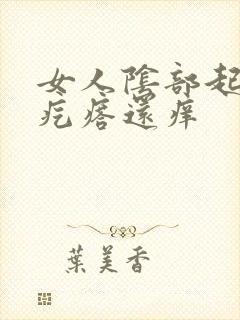 女人陰部起
疙瘩還痒
葉美香